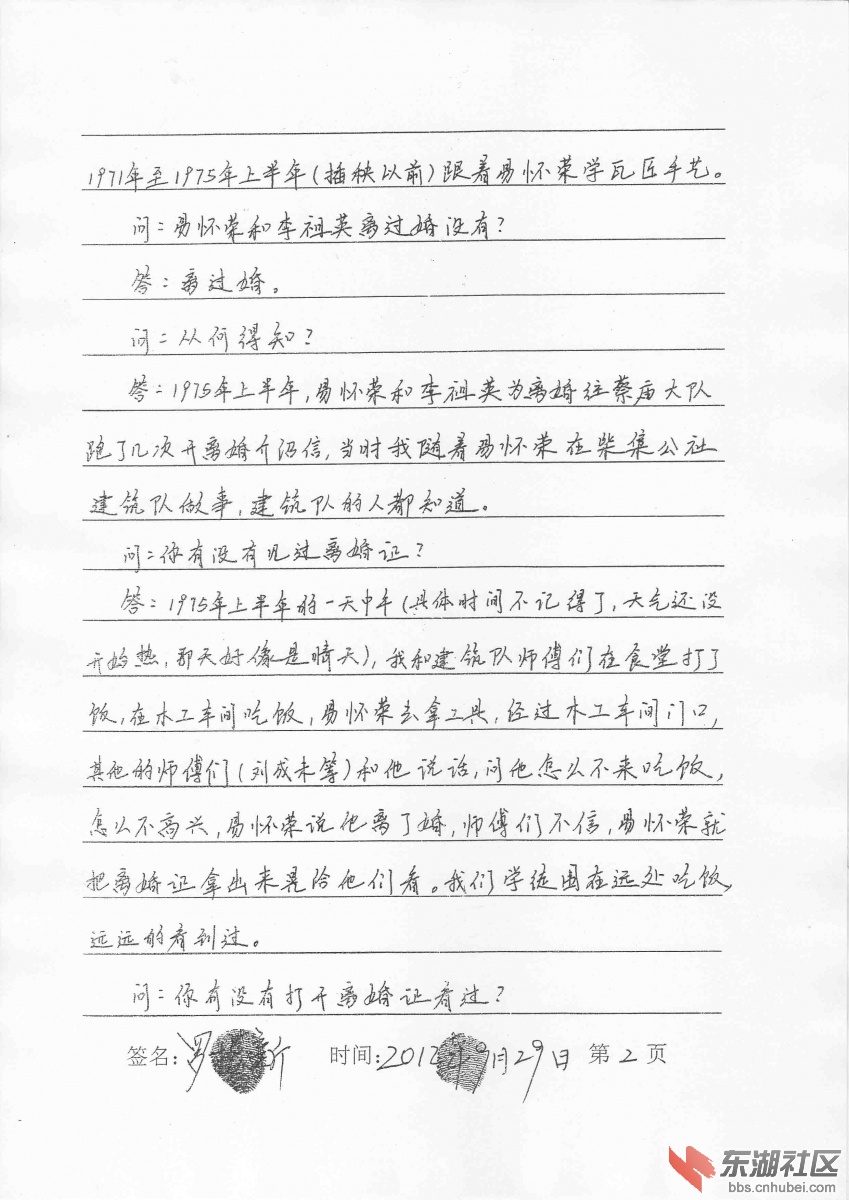 1971年至1975年上半年(插秧以前)跟着易怀荣学瓦匠手艺。
问:易怀荣和李祖英离过婚没有?
答:离过婚。
问:从何得知?
答:1975年上半年,易怀荣和李祖英为离婚往蔡庙大队
跑了几次开离婚介绍信,当时我随着易怀荣在柴集公社
建筑队做事,建筑队的人都知道。
问:你有没有见过离婚证?
答:1975年上半年的一天中午(具体时间不记得了,天气还没
开始热,那天好像是晴天),我和建筑队师傅们在食堂打了
饭,在木工车间吃饭,易怀荣去拿工具,经过木工车间门口,
其他的师傅们(刘成未等)和他说话,问他怎么不来吃饭,
怎么不高兴,易怀荣说他离了婚,师傅们不信,易怀荣就
把离婚证拿出来晃给他们看。我们学徒围在远处吃饭,
远远的看到过。
问:你有没有打开离婚证看过?
签名:罗 时间:2012年9月29日 第2页
东湖社区
bbs.cnhubei.com